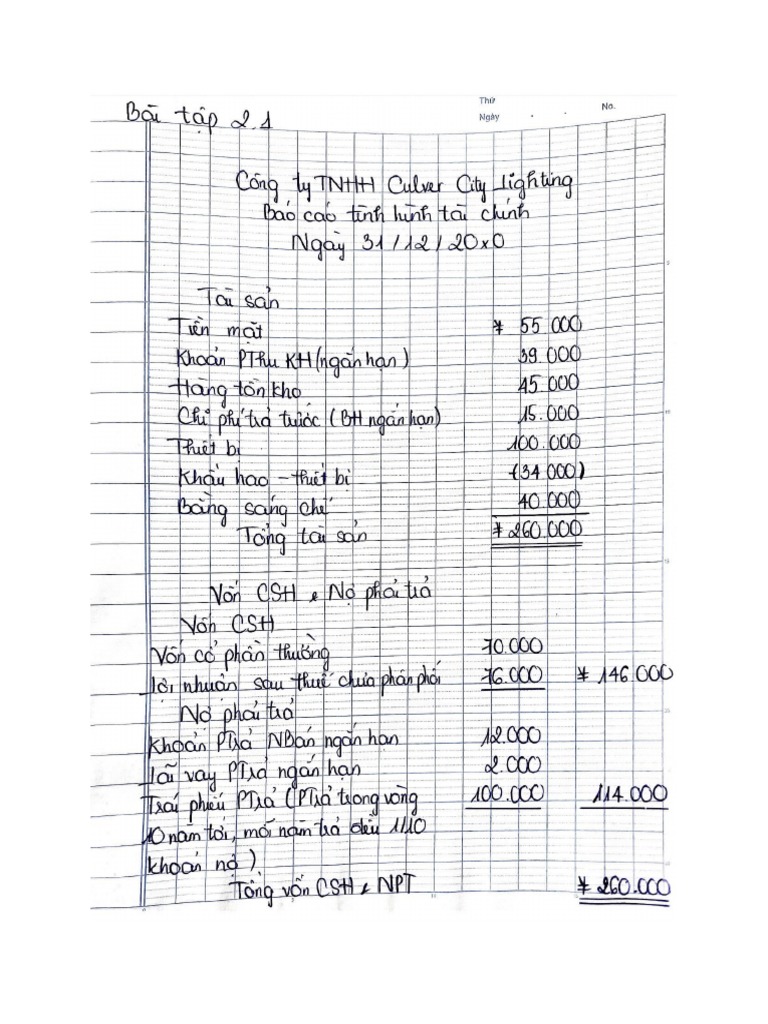 Thứ
No.
Ngày
Bài tập 2.1
Công ty TNHH Culver City Lighting
Báo cáo tình hình tài chính
Ngày 31/12/20x0
Tài sản
Tiền mặt ¥ 55 000
Khoản PThu KH (ngắn hạn) 39 000
Hàng tồn kho 45 000
Chi phí trả trước (BH ngắn hạn) 15.000
Thiết bị 100.000
Khấu hao - thiết bị (34 000)
Bằng sáng chế 40.000
Tổng tài sản ¥ 260.000
Vốn CSH & Nợ phải trả
Vốn CSH
Vốn cổ phần thường 70.000
Lợi nhuận sau thuế chưa phân phối 76.000 ¥ 146.000
Nợ phải trả
Khoản PTrả NBán ngắn hạn 12.000
Lãi vay PTrả ngắn hạn 2.000
Trái phiếu PTrả (PTrả trong vòng 100.000 114.000
10 năm tới, mỗi năm trả đều 1/10
khoản nợ)
Tổng vốn CSH & NPT ¥ 260.000